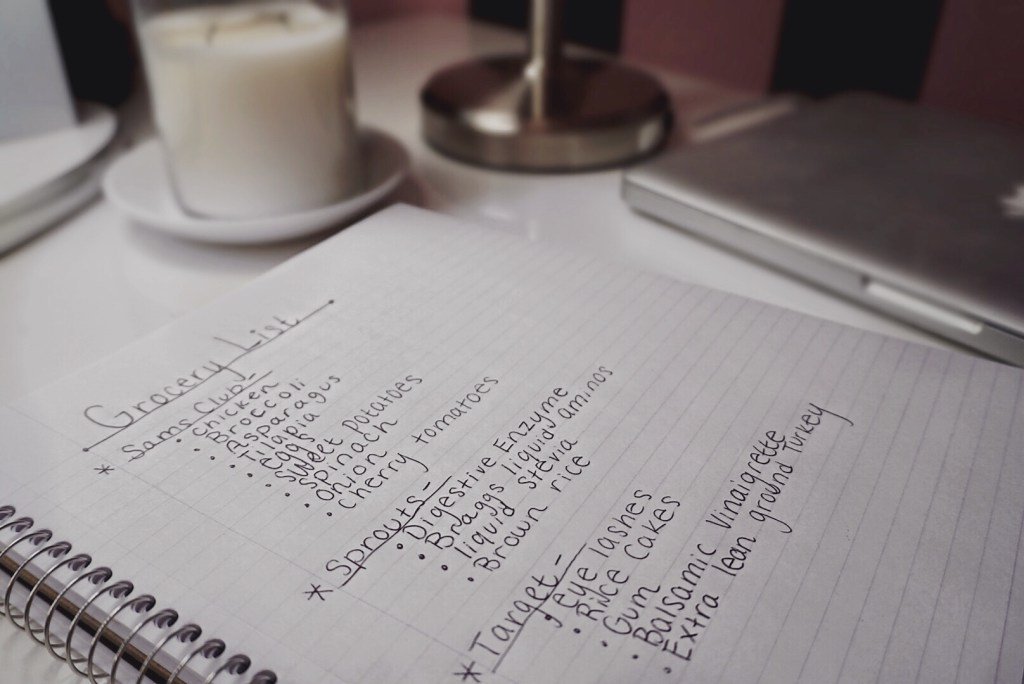 Grocery List
* Sams Club-
• chicken
• Broccoli
• Asparagus
• Tilapia
• eggs
• Sweet potatoes
• Spinach
• Onion
• cherry tomatoes
* Sprouts-
• Digestive Enzyme
• Braggs liquid aminos
• liquid stevia
• Brown rice
* Target-
• Eye lashes
• Rice Cakes
• Gum
• Balsamic Vinaigrette
• Extra lean ground Turkey